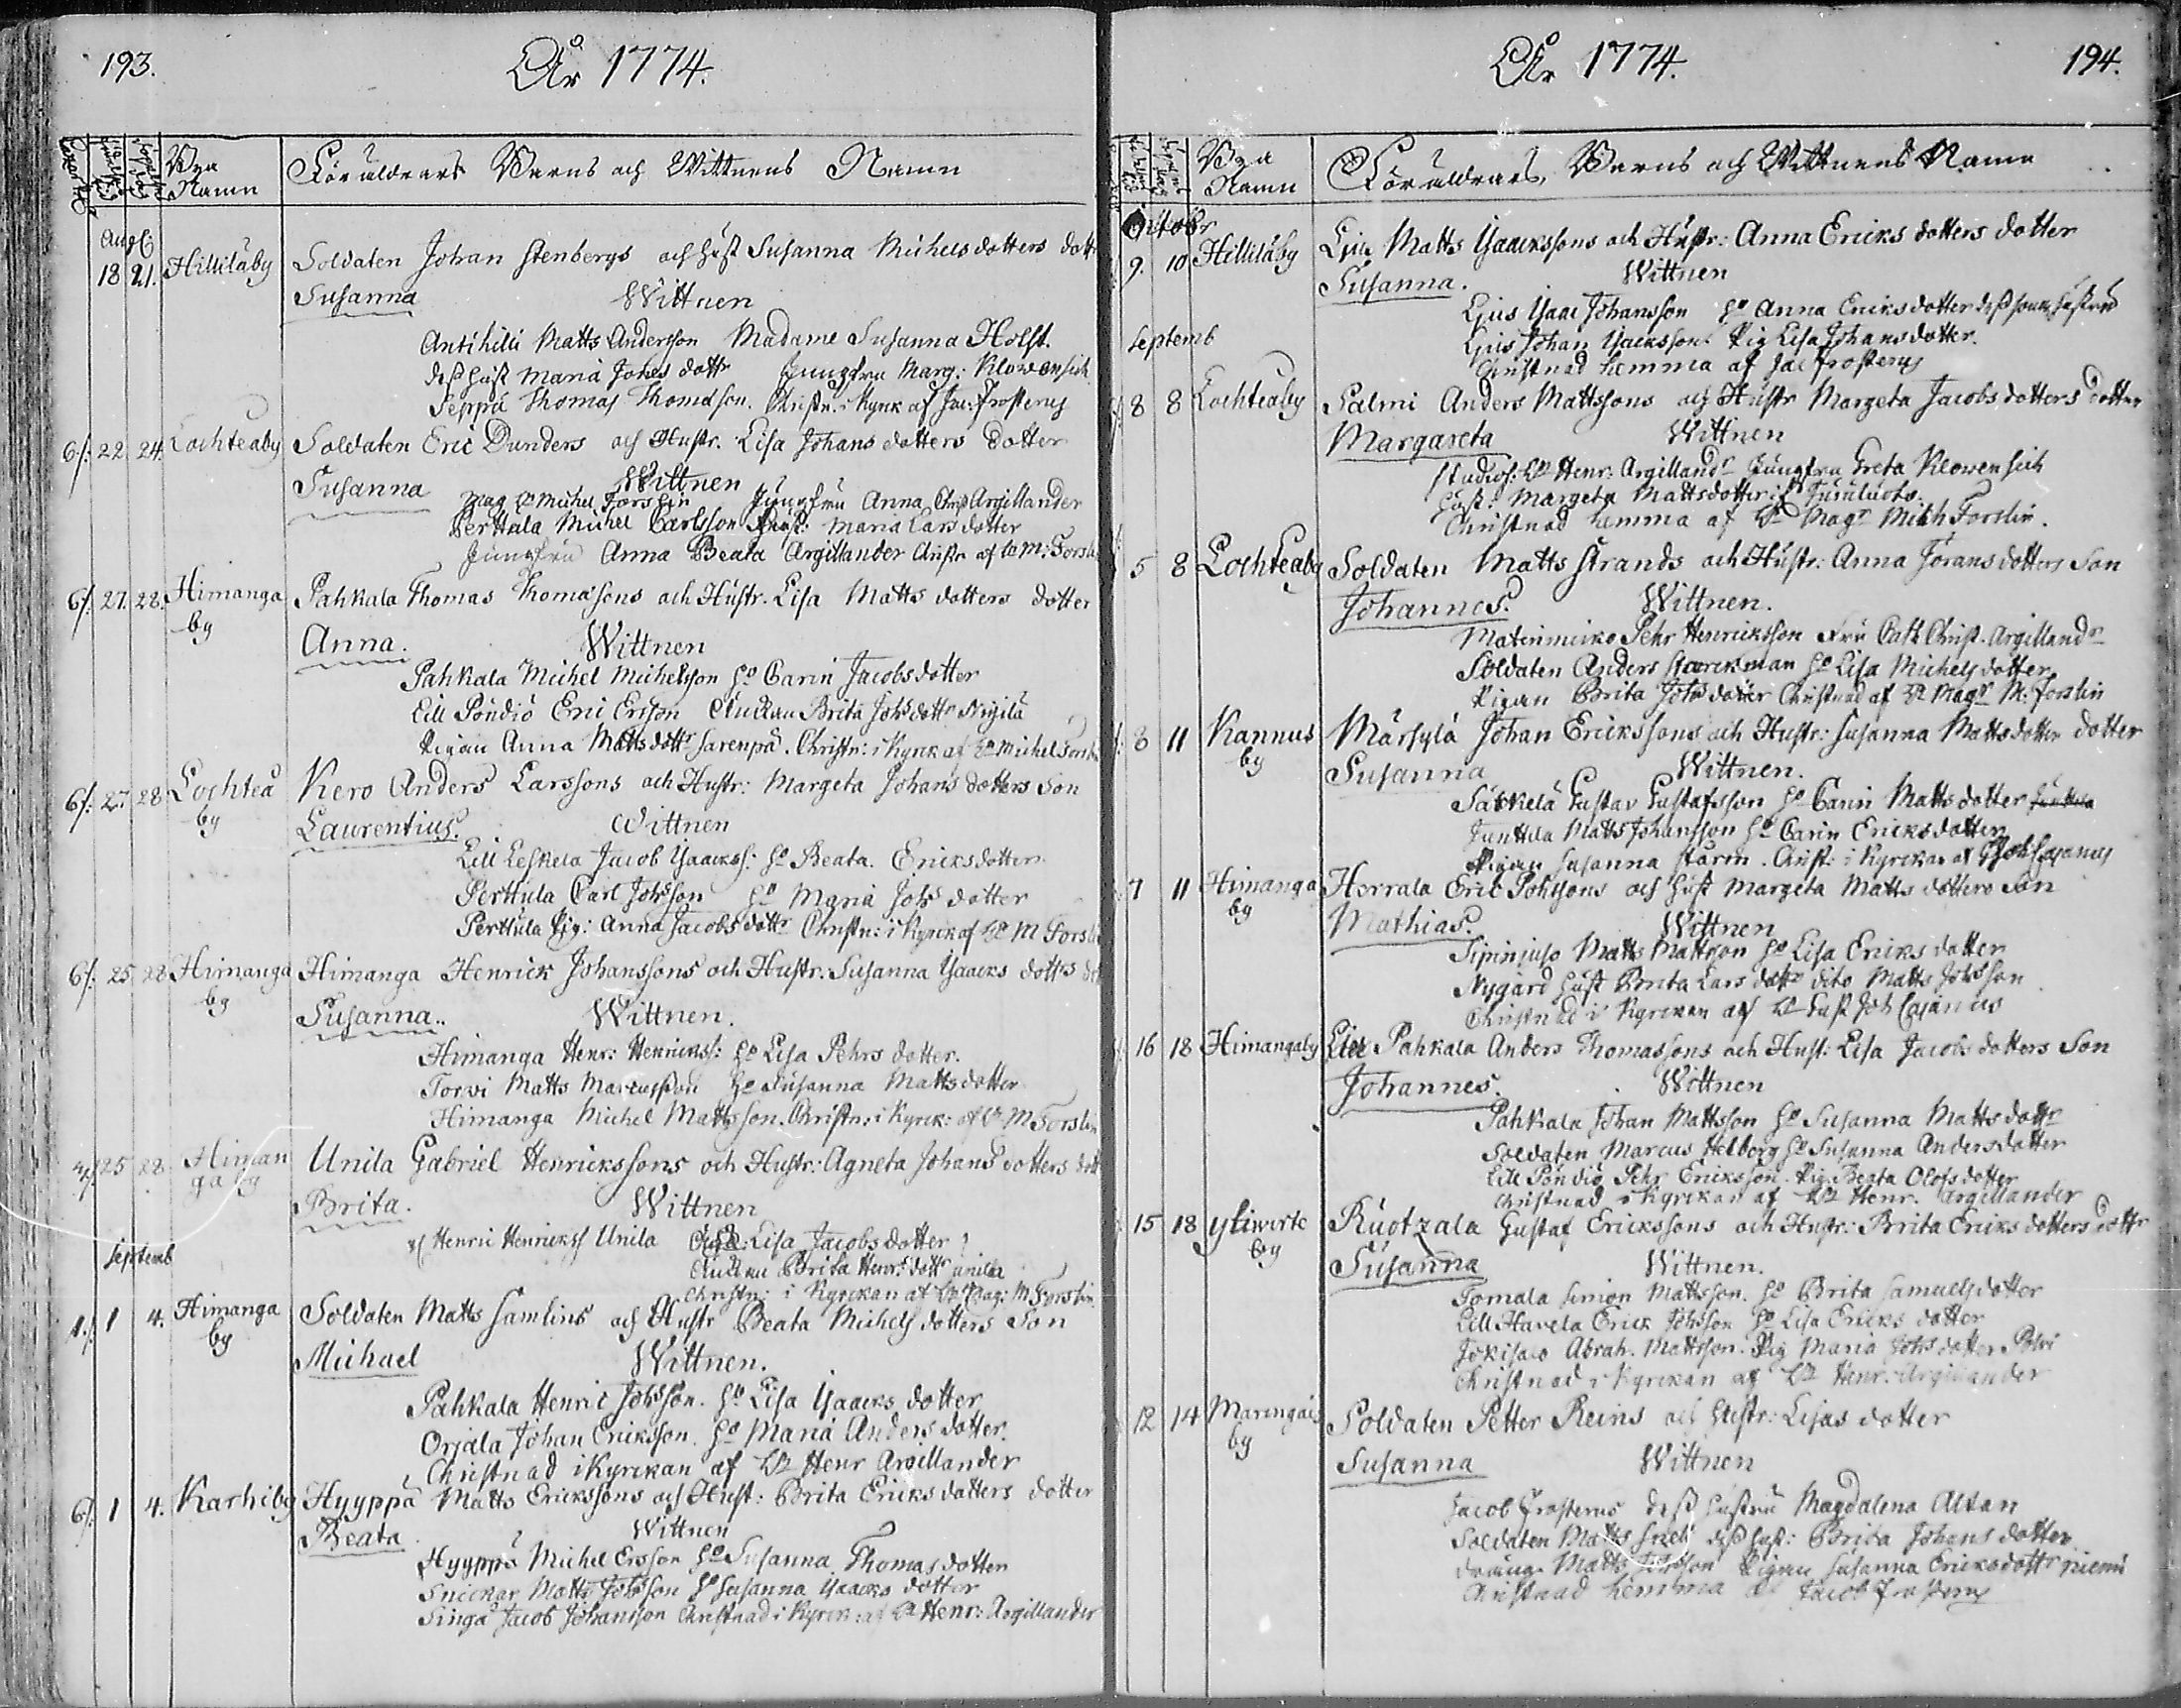 193.
År 1774.
Bya Namn
Föräldrars Barns och Wittnens Namn
Aug
18 21. Hilliläby Soldaten Johan Stenbergs och Hust Susanna Michelsdotters dott
Susanna Wittnen
Antihilli Matts Andersson Madame Susanna Holst.
dess Hust Maria Johes dottr Jungfru Marg: Klowensich
Seppä Thomas Thomasson. Christn. i Kyrk af Jac. Frosterus
6/: 22 24 Lochteaby Soldaten Eric Dunders och Hustr. Lisa Johans dotters dotter
Susanna Wittnen
Mag Hr Michel Forslin Jungfru Anna Chris Argillander
Perttula Michel Carlsson Hust: Maria Lars dotter
Jungfru Anna Beata Argillander Christn af Hr M: Forsl
6/: 27. 28. Himanga by Pahkala Thomas Thomasons och Hustr. Lisa Matts dotters dotter
Anna. Wittnen
Pahkala Michel Michelsson Ho Carin Jacobsdotter
Lill Pöndiö Eric Ersson Änckan Brita Johs dottr Nigilä
Pigan Anna Matts dottr Sarenpä. Christn: i Kyrk af Hr Michel Forsl
6/: 27 28 Lochteå by Kero Anders Larssons och Hustr: Margeta Johans dotters Son
Laurentius. Wittnen
Lill Leskela Jacob Ysaacks: Ho Beata. Ericksdotter
Perttula Carl Johsson Ho Maria Johs dotter
Perttula Pig: Anna Jacobs dottr Christn: i Kyrck af Hr M Forsl
6/: 25 28 Himanga by Himanga Henrick Johanssons och Hustr. Susanna Ysaacks dotters
Susanna.. Wittnen.
Himanga Henr: Henrickss: Ho Lisa Pehrs dotter.
Torwi Matts Marcusson Ho Susanna Matts dotter
Himanga Michel Mattsson. Christn: i Kyrck: af Hr M Forslin
4/. 25 28 Himan ga by Unila Gabriel Henrickssons och Hustr: Agneta Johans dotters dott
Brita. Wittnen
Henric Henrickss Unila Lisa Jacobsdotter
Änckan Brita Henrs dottr unila
Christn: i Kyrckan af Hr Mag: M Forslin
Septemb
1./. 1 4. Himanga by Soldaten Matts Samlins och Hustr Beata Michels dotters Son
Michael Wittnen.
Pahkala Henric Johsson. Ho Lisa Ysaacks dotter
Orjala Johan Ericksson. Ho Maria Anders dotter.
Christnad i Kyrckan af Hr Henr Argillander
6/: 1 4. Karhiby Hyyppä Matts Erickssons och Hust: Brita Ericks dotters dotter
Beata Wittnen
Hyyppä Michel Ersson Ho Susanna Thomasdotter
Snickar Matts Johsson Ho Susanna Ysaacks dotter
Singå Jacob Johansson Christnad i Kyrck: af Hr Henr: Argillander
År 1774.
194.
Bya Namn
Föräldrars, Barns och Wittnens Namn
Octobr
9. 10 Hilliläby Ljus Matts Ysaackssons och Hustr: Anna Ericks dotters dotter
Susanna. Wittnen
Ljus Ysac Johansson Ho Anna Ericksdotter
Ljus Johan Ysacksson Pig Lisa Johansdotter.
Christnad hemma af Jac Frosterus
Septemb
8 8 Lochteaby Salmi Anders Mattssons och Hustr Margeta Jacobs dotters dotter
Margareta Wittnen
Studios: Hr Henr: Argillandr Jungfru Greta Klowensich
Hust: Margeta Mattsdotter
Christnad hemma af Hr Magr Mich Forslin.
5 8 Lochteaby Soldaten Matts Strands och Hustr: Anna Jörans dotters Son
Johannes. Wittnen.
Pehr Henricksson Fru Cath Christ. Argillandr
Soldaten Anders Storckman Ho Lisa Michels dotter
Pigan Brita Johs dotter Christnad af Hr Magr M. Forslin
8 11 Kannus by Märsylä Johan Erickssons och Hustr: Susanna Matts dotters dotter
Susanna Wittnen.
Särkelä Gustav Gustafsson Ho Carin Matts dotter
Junttila Matts Johansson Ho Carin Ericksdotter
Pigan Susanna Storm. Christ: i Kyrckan af Joh Cajanus
7 11 Himanga by Herrala Eric Johssons och Hust Margeta Matts dotters Son
Mathias. Wittnen
Matts Mattsson Ho Lisa Ericks dotter
Nygård Hust Brita Lars dottr dito Matts Johsson
Christnad i Kyrckan af Hr Gust Joh Cajanus
16 18 Himangaby Lill Pahkala Anders Thomassons och Hust: Lisa Jacobs dotters Son
Johannes. Wittnen
Pahkala Johan Mattsson Ho Susanna Matts dottr
Soldaten Marcus Helborg Ho Susanna Andersdotter
Lill Pöndiö Pehr Ericksson. Pig. Beata Olofsdotter
Christnad i Kyrckan af Hr Henr. Argillander
15 18 yliwirte by Ruotzala Gustaf Erickssons och Hustr: Brita Ericks dotters dottr
Susanna Wittnen.
Tomala Simon Mattsson. Ho Brita Samuelsdotter
Lill Havela Erick Johsson Ho Lisa Ericks dotter
Jokisalo Abrah. Mattsson. Pig Maria Johs dotter
Christnad i Kyrckan af Hr Henr. Argillander
12 14 Maringais by Soldaten Petter Reins och Hustr: Lisas dotter
Susanna Wittnen
Jacob Frosterus dess Hustru Magdalena Altan
Soldaten Matts dess Hust: Brita Johans dotter
dräng Matts Johsson Pigan Susanna Ericksdottr niemi
Christnad hemma af Jacob Frosterus